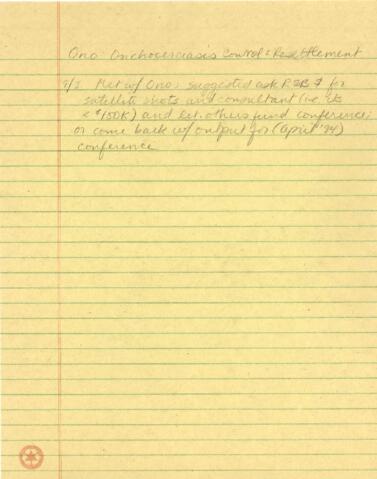 Ono: Onchocerciasis Control & Resettlement
Met w/ Ono: suggested ask for
satellite shots and consultant (i.e. its
< $150K) and let others fund conference;
or come back w/ output for (April '94)
conference